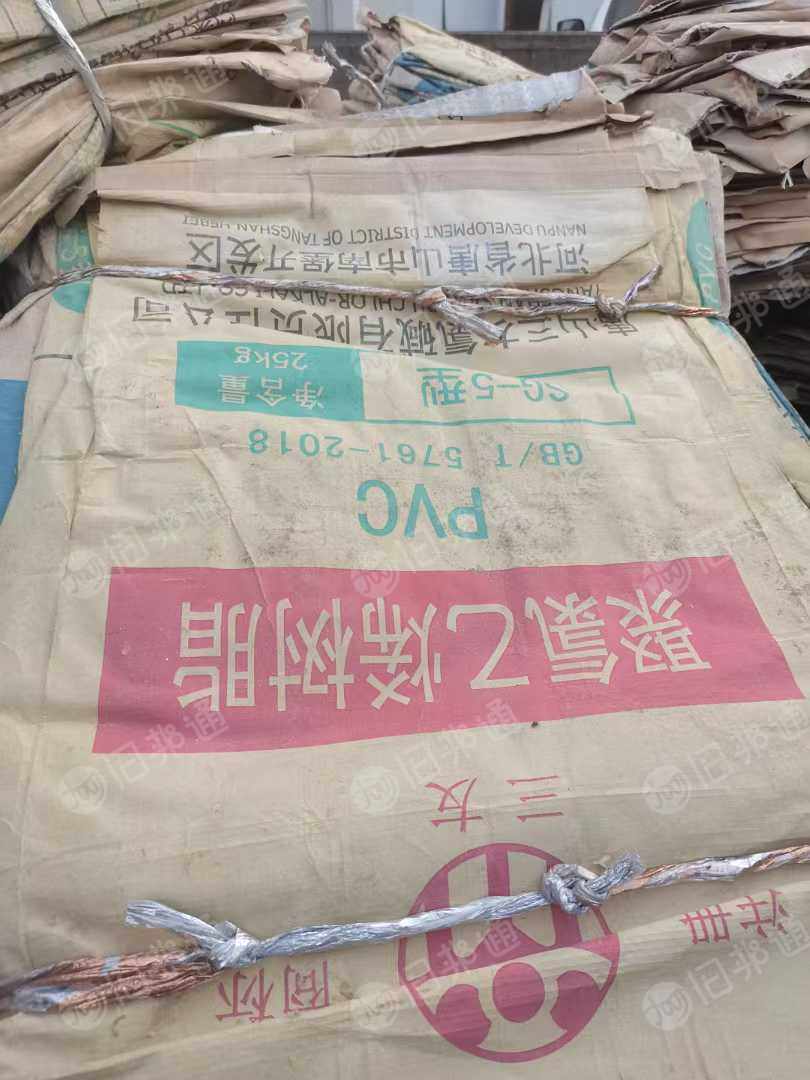 注册 商标
三友
聚氯乙烯树脂
PVC
GB/T 5761-2018
SG-5型
净含量
25kg
唐山三友氯碱有限责任公司
CHLOR-ALKALI CO.,LTD
河北省唐山市南堡开发区
NANPU DEVELOPMENT DISTRICT OF TANGSHAN HEBEI
PVC
旧邦通